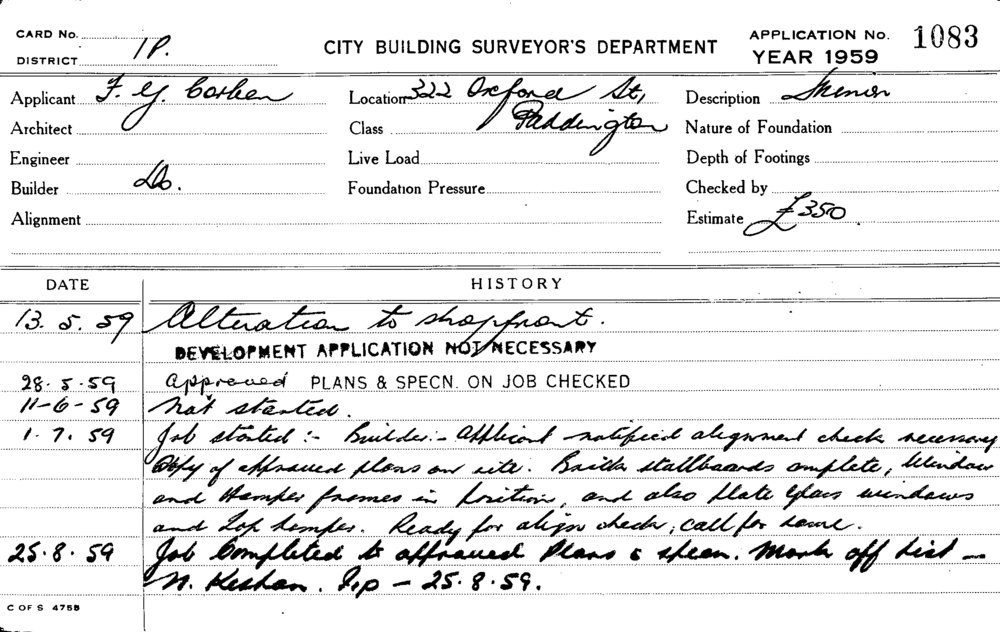 CARD No.
DISTRICT 1P.
CITY BUILDING SURVEYOR'S DEPARTMENT
APPLICATION No. 1083
YEAR 1959
Applicant F. G.
Location 322 Oxford St,
Paddington
Description
Architect
Class
Nature of Foundation
Engineer
Live Load
Depth of Footings
Builder Do.
Foundation Pressure
Checked by
Alignment
Estimate £350
DATE HISTORY
13. 5. 59 Alteration to shopfront.
DEVELOPMENT APPLICATION NOT NECESSARY
28. 5. 59 Approved PLANS & SPECN. ON JOB CHECKED
11-6-59 Not started.
1. 7. 59 Job started :- Builder :- Applicant notified alignment check necessary
Copy of approved plans on site. Brick stallboards complete, Window
and Hamper frames in position, and also plate glass windows
and Top hamper. Ready for align check, call for same.
25. 8. 59 Job Completed to approved Plans & specn. Mark off List -
N. Insp - 25. 8. 59.
C OF S 4755